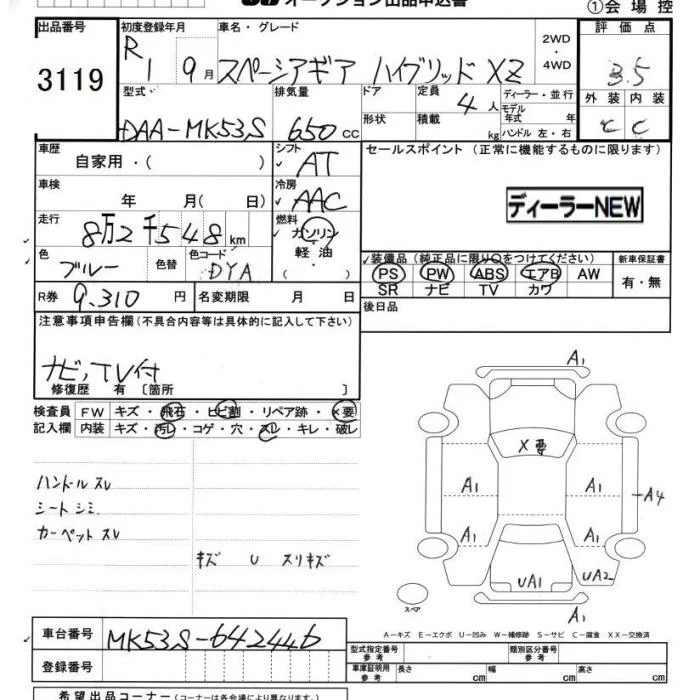 オークション出品申込書
①会場控
出品番号 初度登録年月 車名・グレード 2WD・4WD 評価点
3119 R1 9月 スペーシアギア ハイブリッド XZ 3.5
型式 排気量 ドア 定員 ディーラー・並行 外装 内装
DAA-MK53S 650cc 形状 4人 積載 kg モデル年式 年 ハンドル 左・右 C C
車歴 自家用・( ) シフト AT セールスポイント (正常に機能するものに限ります)
車検 年 月( 日) 冷房 AAC
ディーラーNEW
走行 8万2千548km 燃料 ガソリン 軽油・
色 ブルー 色替 色コード DYA 装備品(純正品に限り○をつけてください) 新車保証書
PS PW ABS エアB AW 有・無
SR ナビ TV カワ
R券 9,310円 名変期限 月 日 後日品
注意事項申告欄(不具合内容等は具体的に記入して下さい)
ナビ,TV付
修復歴 有 〔箇所 〕
検査員 FW キズ・飛石・ヒビ割・リペア跡・X要
記入欄 内装 キズ・汚レ・コゲ・穴・スレ・キレ・破レ
ハンドル スレ
シート シミ
カーペット スレ
キズ U スリキズ
A1
X要
A1 A1 A4
A1 A1
UA1 UA2
A1
スペア
A-キズ E-エクボ U-凹み W-補修跡 S-サビ C-腐食 XX-交換済
車台番号 MK53S-642446
登録番号
型式指定番号 参考 類別区分番号 参考
車庫証明用 参考 長さ cm 幅 cm 高さ cm
希望出品コーナー(コーナーは各会場により異なります。)